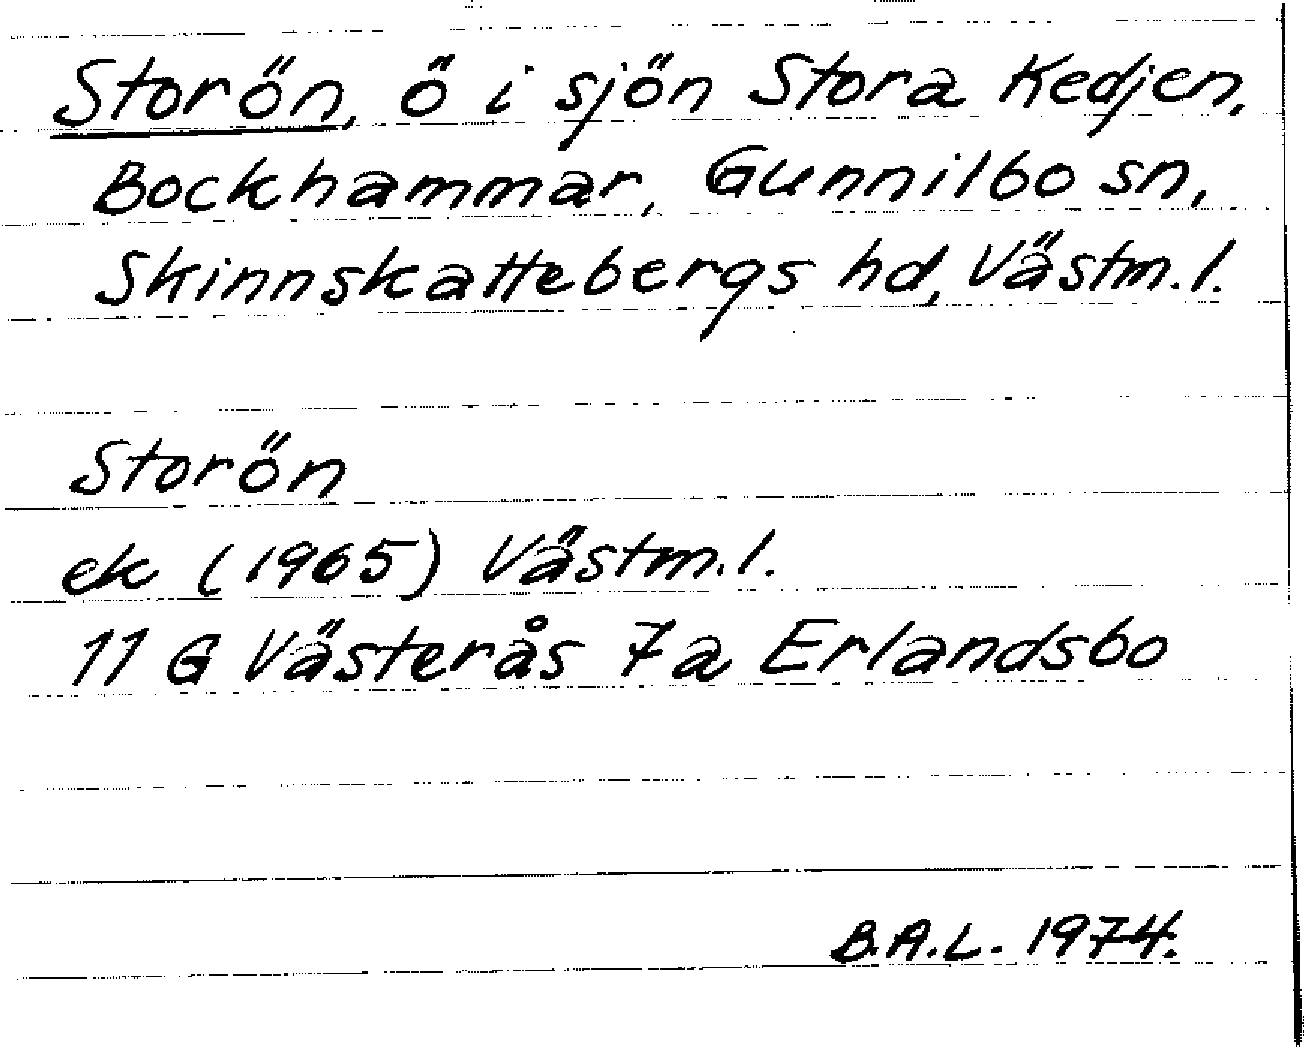 Storön, ö i sjön Stora Kedjen,
Bockhammar, Gunnilbo sn,
Skinnskattebergs hd, Västm. l.
Storön
ek (1965) Västm. l.
11 G Västerås 7a Erlandsbo
B.A.L. 1974.